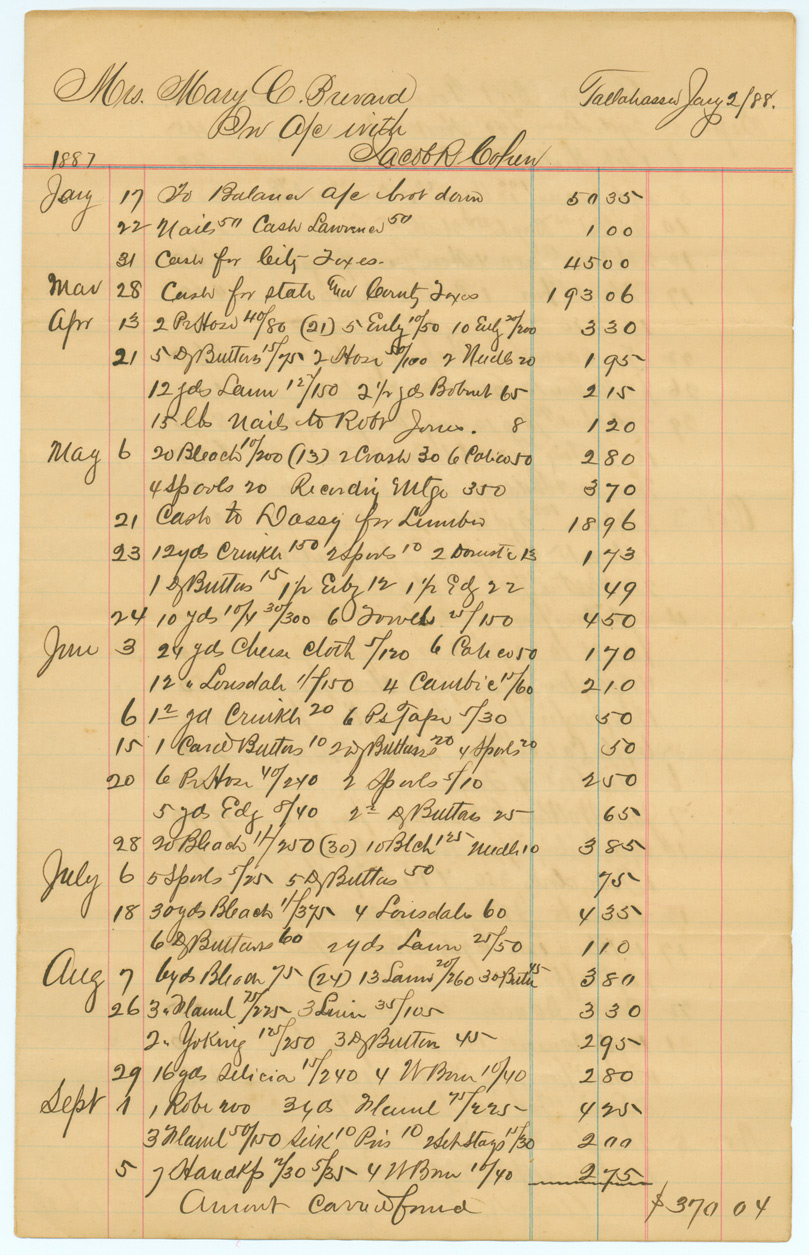 Mrs. Mary C. Brevard Tallahassee Jany 2/88.
In a/c with
Jacob R Cohen
1887
Jany 17 To Balance a/c brot down 50 35
22 Nails 50 Cash Lawrence 50 1 00
31 Cash for City Taxes. 45 00
Mar 28 Cash for State and County Taxes 193 06
Apr 13 2 Pr Hose 40/80 (21) 5 Enbg 10/50 10 Enbg 20/200 3 30
21 5 Dz Buttons 15/75 2 Hose 50/100 2 Needls 20 1 95
12 yds Lawn 12½/150 2½ yds Bobnet 65 2 15
15 lbs Nails to Robt Jones. 8 1 20
May 6 20 Bleach 10/200 (13) 2 Crash 30 6 Calico 50 2 80
4 Spools 20 Recording Mtge 350 3 70
21 Cash to Dassy for Lumber 18 96
23 12 yds Crinkle 150 2 Spools 10 2 Domestic 13 1 73
1 Dz Buttons 15 1½ Enbg 12 1½ Edg 22 49
24 10 yds 10/4 30/300 6 Towels 25/150 4 50
June 3 24 yds Cheese cloth 5/120 6 Calico 50 1 70
12 " Lonsdale 11/150 4 Cambric 15/60 2 10
6 1½ yd Crinkle 20 6 Ps Tape 5/30 50
15 1 Card Buttons 10 2 Dz Buttons 20 4 Spools 20 50
20 6 Pr Hose 40/240 2 Spools 5/10 2 50
5 yds Edg 8/40 2½ Dz Buttons 25 65
28 20 Bleach 11/250 (30) 10 Blch 125 Needls 10 3 85
July 6 5 Spools 5/25 5 Dz Buttons 50 75
18 30 yds Bleach 11/375 4 Lonsdale 60 4 35
6 Dz Buttons 60 2 yds Lawn 25/50 1 10
Aug 7 6 yds Bleach 75 (24) 13 Lawn 20/260 3 Dz Buttn 45 3 80
26 3 " Flannel 75/225 3 Linin 35/105 3 30
2 " Yoking 125/250 3 Dz Button 45 2 95
29 16 yds Silicia 15/240 4 W Bone 10/40 2 80
Sept 1 1 Robe 200 3 yds Flannel 75/225 4 25
3 Flannel 50/150 Silk 10 Pins 10 2 Set Stays 15/30 2 00
5 7 Handkfs 2/30 5/35 4 W Bone 10/40 2 75
Amount carried forwd $370 04